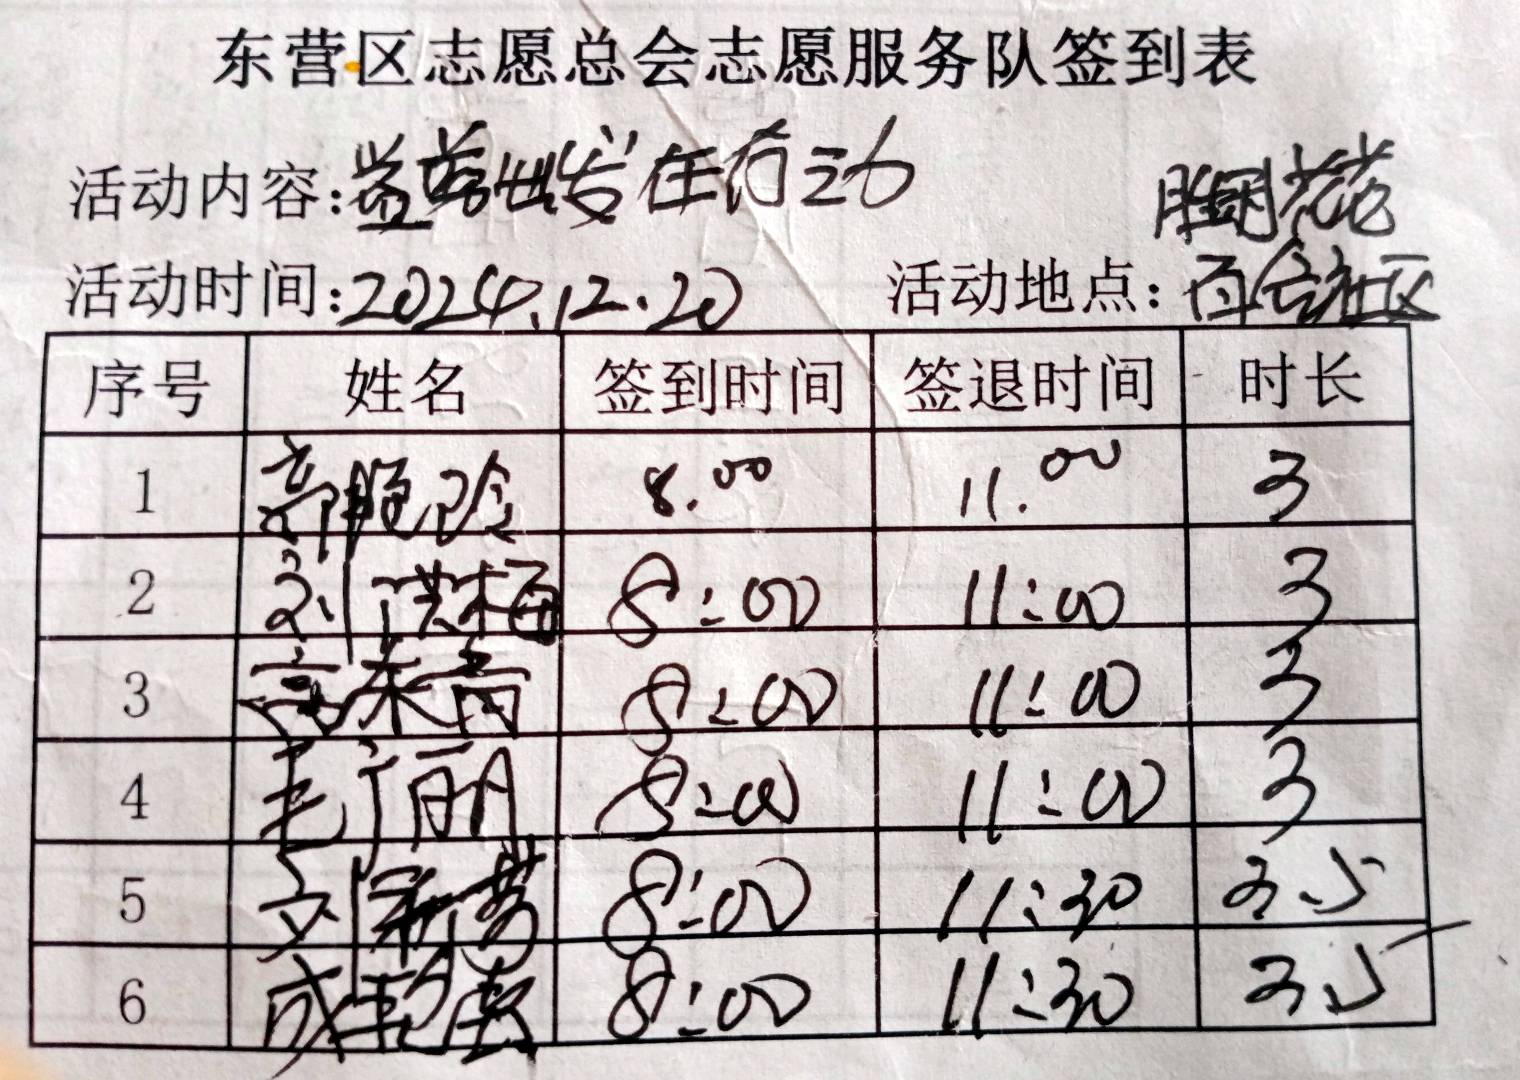 东营区志愿总会志愿服务队签到表
活动内容:益益出发在行动
胸花
活动时间:2024.12.20 活动地点:百合社区
序号 姓名 签到时间 签退时间 时长
1 8.00 11.00 3
2 刘洪梅 8:00 11:00 3
3 高来高 8:00 11:00 3
4 毛广丽 8:00 11:00 3
5 刘 8:00 11:30 3.5
6 成 8:00 11:30 3.5